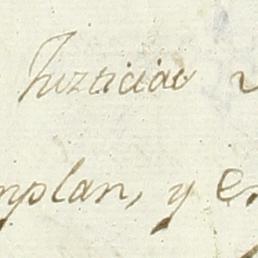 Iuzticias
mplan, y e